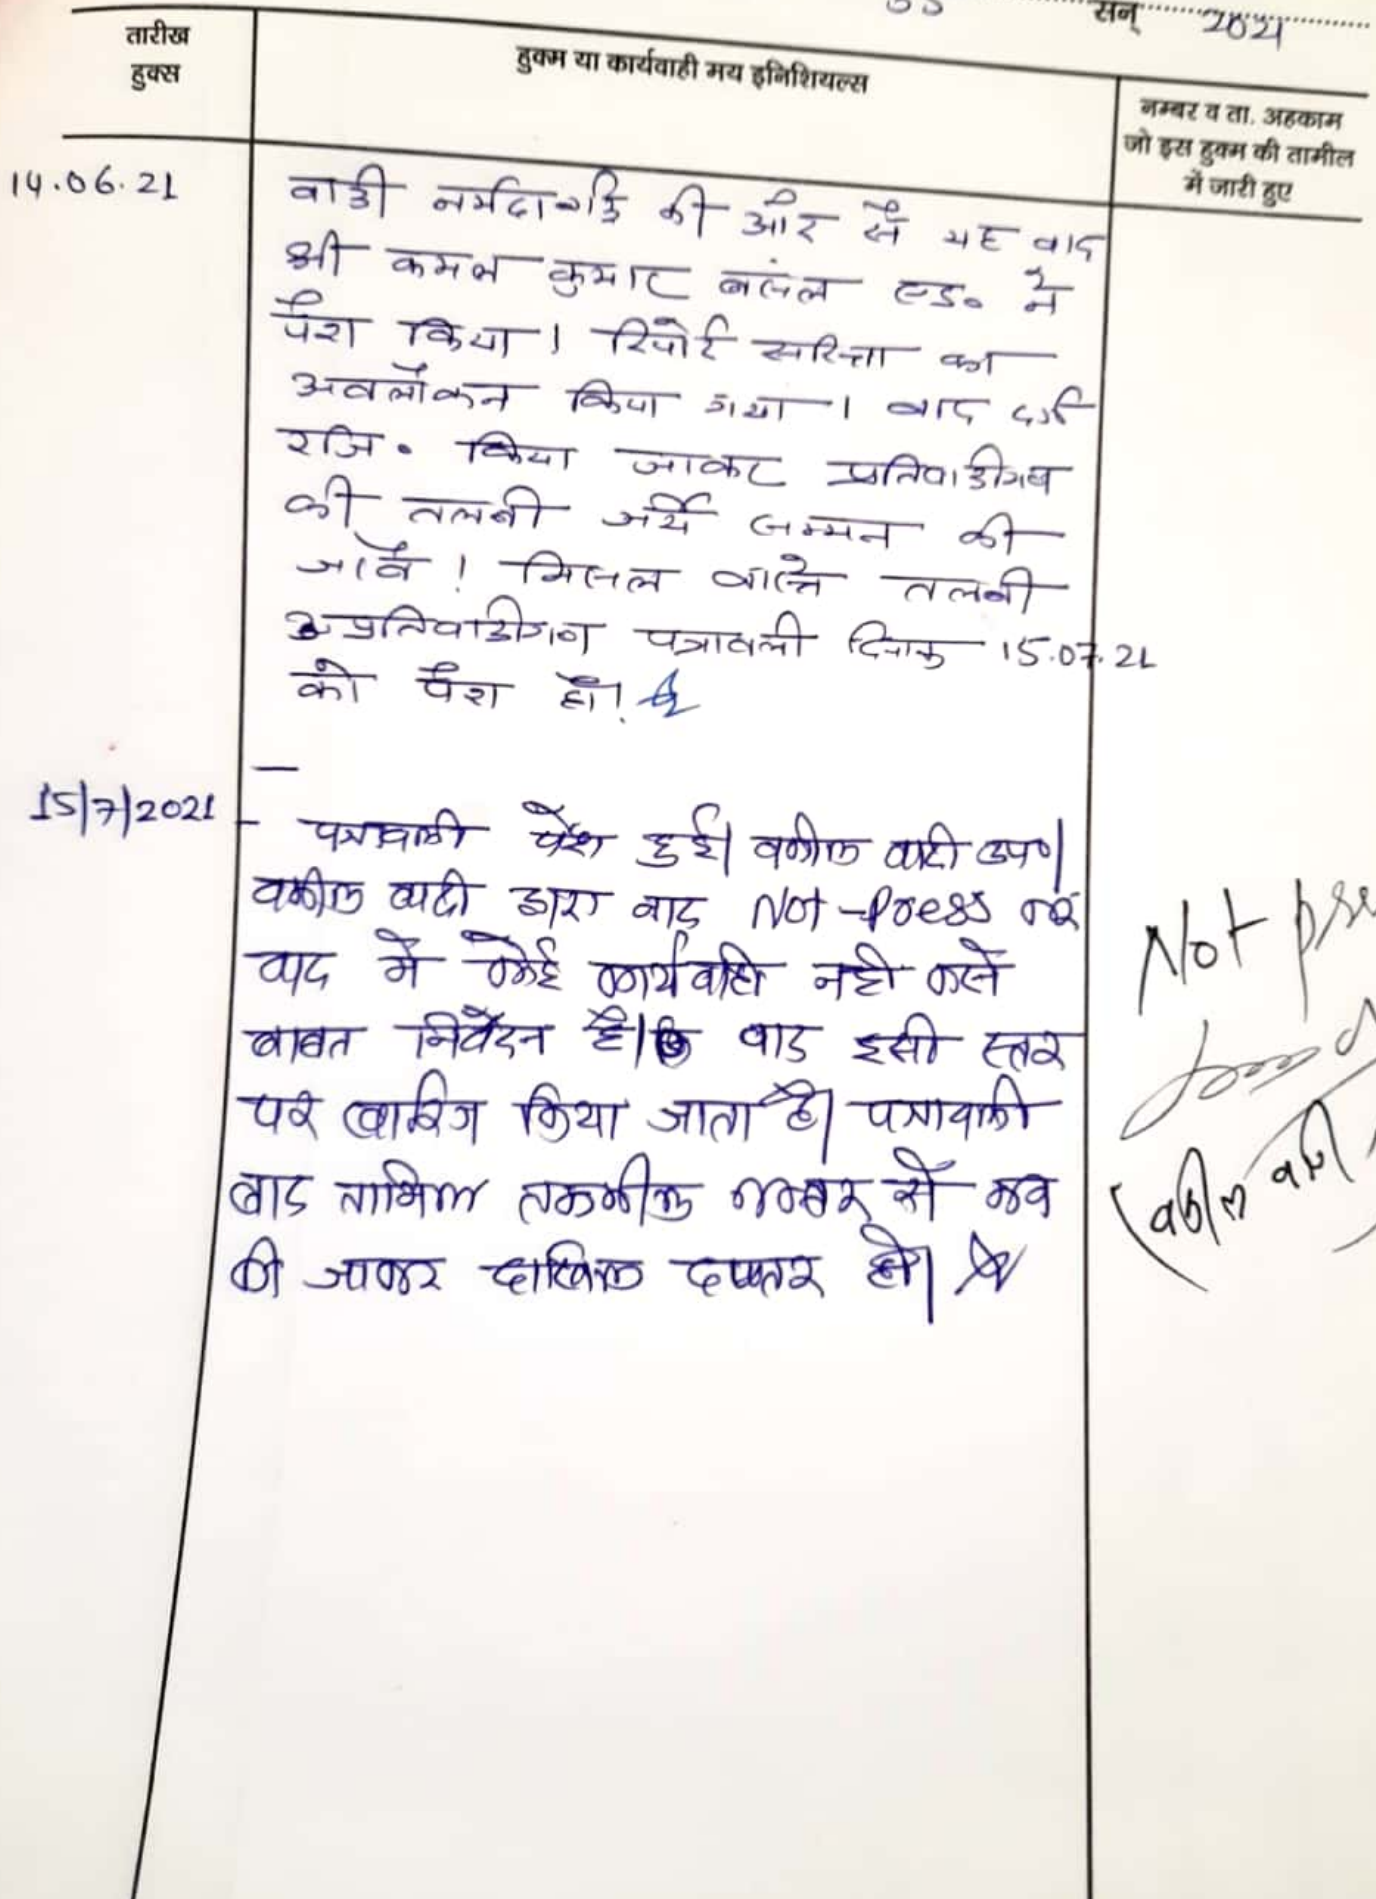 सन् 2021
तारीख
हुक्स
हुक्म या कार्यवाही मय इनिशियल्स
नम्बर व ता. अहकाम
जो इस हुक्म की तामील
में जारी हुए
14.06.21
वादी की ओर से यह वाद
श्री कमल कुमार बंसल एड० ने
पेश किया। रिपोर्ट सरिश्ता का
अवलोकन किया गया। वाद दर्ज
रजि० किया जाकर प्रतिवादीगण
की तलबी जर्ये सम्मन की
जावे। मिसल वास्ते तलबी
प्रतिवादीगण पत्रावली दिनांक 15.07.21
को पेश हो।
15/7/2021
पत्रावली पेश हुई। वकील वादी उप०।
वकील वादी द्वारा वाद Not-Press कर
वाद में कोई कार्यवाही नही करने
बाबत निवेदन है। वाद इसी स्तर
पर खारिज किया जाता है। पत्रावली
बाद तामिल तकमील नम्बर से कम
की जाकर दाखिल दफ्तर हो।
Not
(वकील वादी